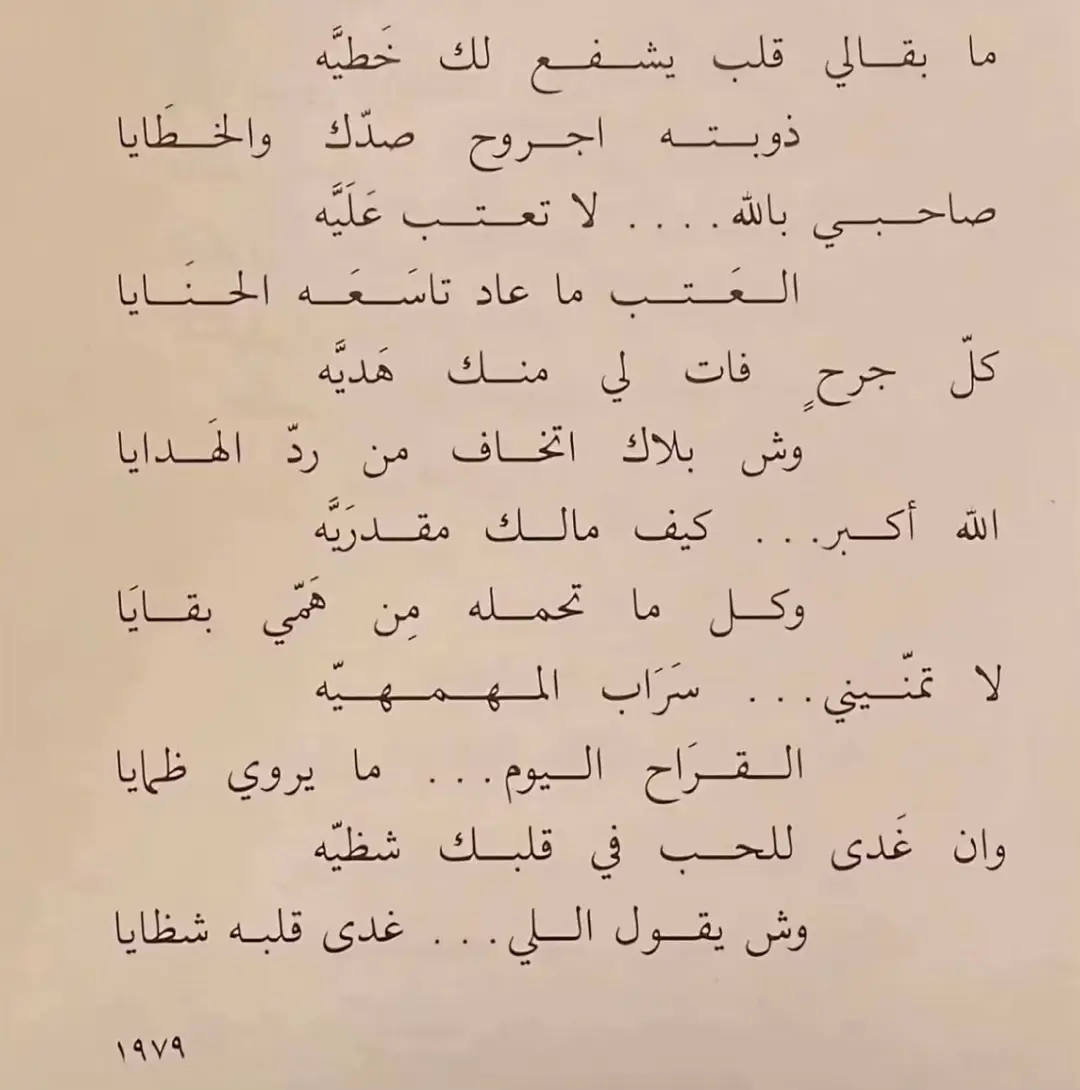 ما بقالي قلب يشفع لك خَطيَّه
ذوبته اجروح صدّك والخطَايا
صاحبي بالله .... لا تعتب عَلَيَّه
العَتب ما عاد تاسَعَه الحنَايا
كلّ جرحٍ فات لي منك هَديَّه
وش بلاك اتخاف من ردّ الهَدايا
الله أكبر ... كيف مالك مقدرَيَّه
وكل ما تحمله مِن هَمّي بقايَا
لا تمنّيني ... سَرَاب المهمهيّه
القرَاح اليوم ... ما يروي ظمايا
وان غَدى للحب في قلبك شظيّه
وش يقول اللي ... غدى قلبه شظايا
١٩٧٩